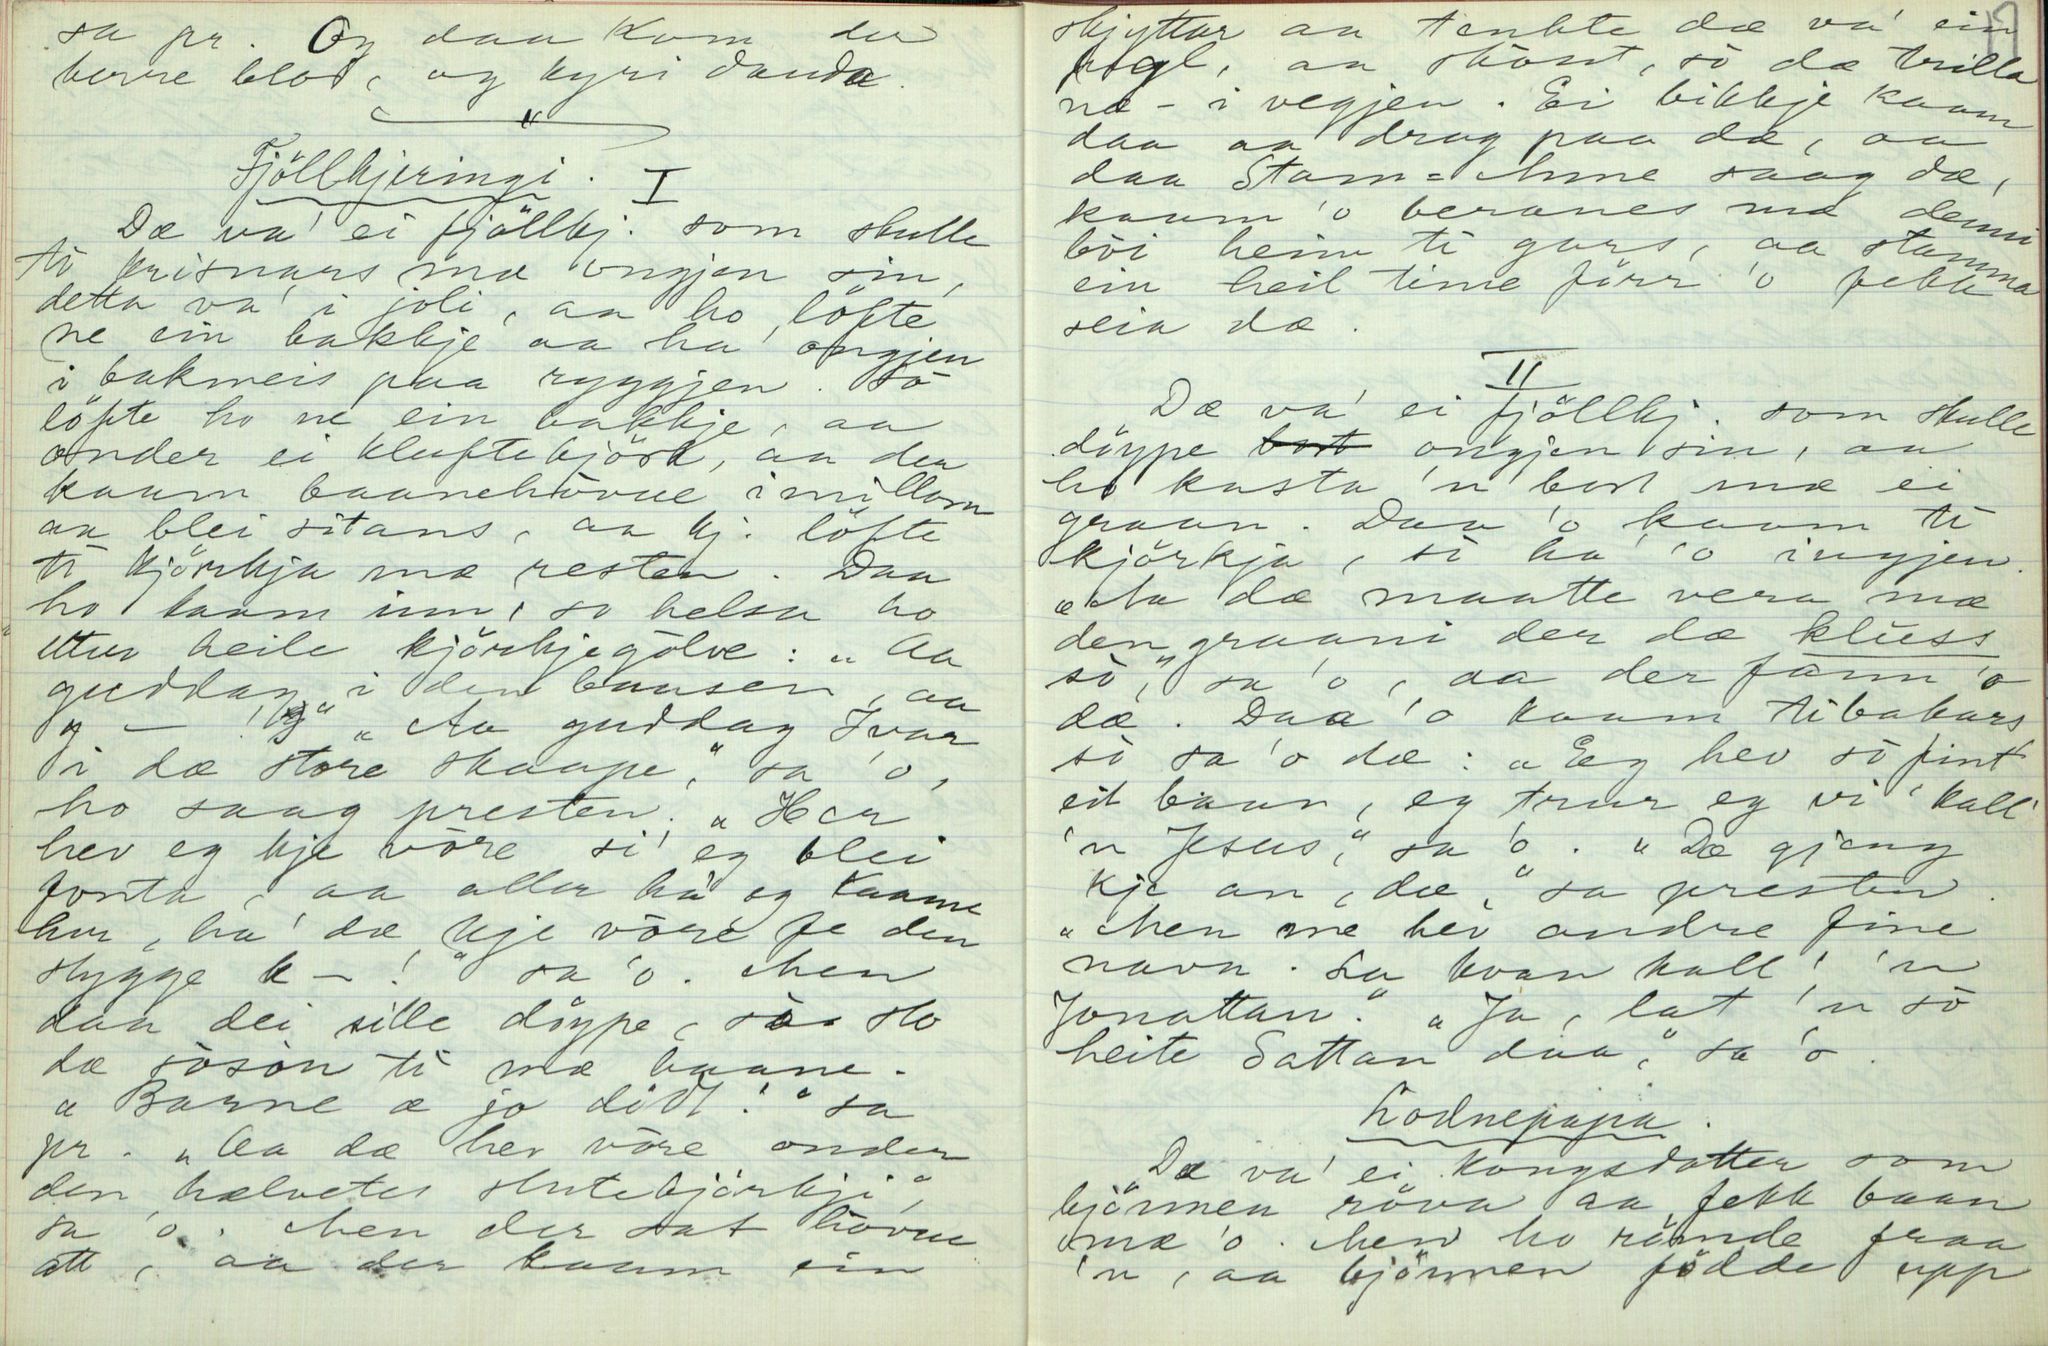 sa pr. Og daa kom der
berre blod, og kyri dauda.
"
Fjöllkjeringi.
I
Dæ va' ei fjöllkj. som skulle
ti krisnars mæ ongjen sin,
detta va' i joli, aa ho löfte
ne ein bakkje aa ha' ongjen
i bakmeis paa ryggjen. Sò
löfte ho ne ein bakkje, aa
onder ei kluftebjörk, aa der
kaam baanehòvue imillom
aa blei sitans, aa kj. löfte
ti kjörkja mæ resten. Daa
ho kaam inn, so helsa ho
utur heile kjörkjegölve: „Aa
guddag i den baasen, aa
g — !" „Aa guddag Ivar
i dæ store skaape," sa 'o,
ho saag presten. „Her
hev eg kje vöre si' eg blei
fonta, aa aller ha' eg kaame
her, ha' dæ kje vöre fe den
stygge k — !" sa 'o. Men
daa dei sille döype, sò sto
dæ sòsòn ti mæ baane.
„Barne æ jo dödt!" sa
pr. „Aa dæ hev vöre onder
den hælvetes slutebjörkji",
sa 'o. Men der sat hòvue
att, aa der kaam ein
skjyttar aa tenkte dæ va' ein
fogl, aa skòut, sò dæ trilla
ne i vegjen. Ei bikkje kaam
daa aa drog paa dæ, aa
daa Stam-Anne saag dæ,
kaam 'o beranes mæ denni
böi heim ti gars, aa stamma
ein heil time förr 'o fekk
seia dæ.
II
Dæ va' ei fjöllkj. som skulle
döype bort ongjen sin, aa
ho kasta 'n bort mæ ei
graan. Daa 'o kaam ti
kjörkja, sò ha' 'o ingjen.
„Aa dæ maatte vera mæ
den graani der dæ kluss
sò," sa 'o, aa der fann 'o
dæ. Daa 'o kaam tibakars
sò sa 'o dæ: „Eg hev sò fint
eit baan, eg trur eg vi' kall'
'n Jesus," sa 'o. „Dæ gjeng
kje an, dæ," sa presten.
„Men me hev andre fine
navn. La kvan kall' 'n
Jonattan." „Ja, lat 'n sò
heite Sattan daa," sa 'o.
Lodnepapa.
„Dæ va' ei kongsdotter som
bjönnen röva aa fekk baan
mæ 'o. Men ho römde fraa
'n, aa bjönnen födde upp